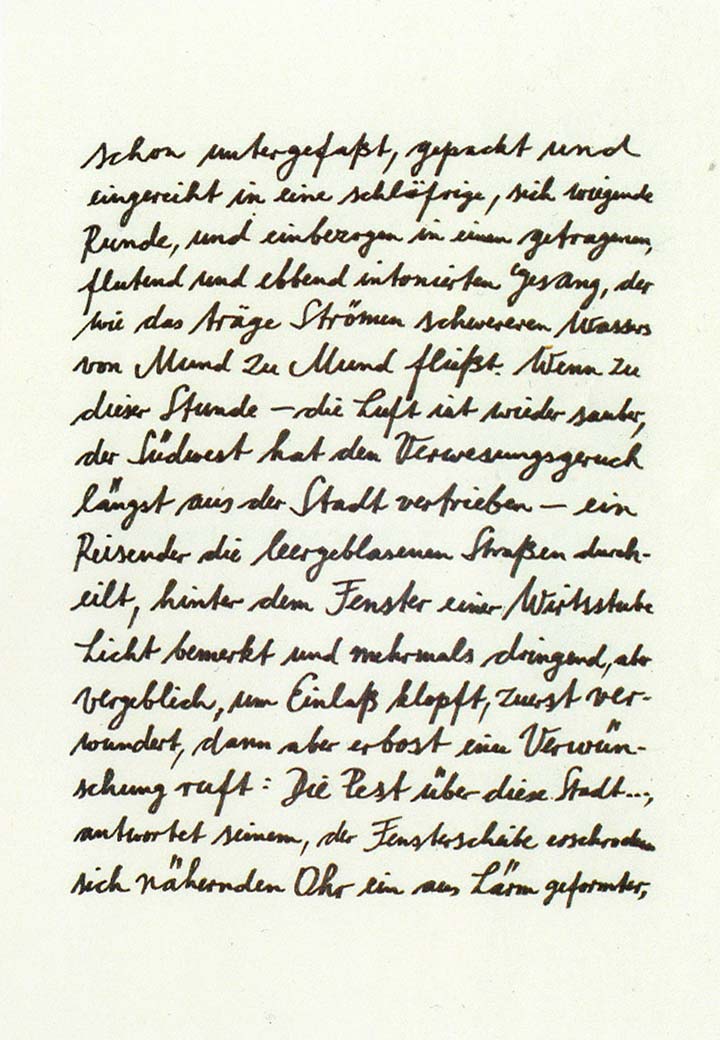 schon untergefaßt, gepackt und
eingereiht in eine schläfrige, sich wiegende
Runde, und einbezogen in einen getragenen,
flutend und ebbend intonierten Gesang, der
wie das träge Strömen schwereren Wassers
von Mund zu Mund fließt. Wenn zu
dieser Stunde – die Luft ist wieder sauber,
der Südwest hat den Verwesungsgeruch
längst aus der Stadt vertrieben – ein
Reisender die leergeblasenen Straßen durch-
eilt, hinter dem Fenster einer Wirtsstube
Licht bemerkt und mehrmals dringend, aber
vergeblich, um Einlaß klopft, zuerst ver-
wundert, dann aber erbost eine Verwün-
schung ruft: Die Pest über diese Stadt...,
antwortet seinem, der Fensterscheibe erschrocken
sich nähernden Ohr ein aus Lärm geformter,